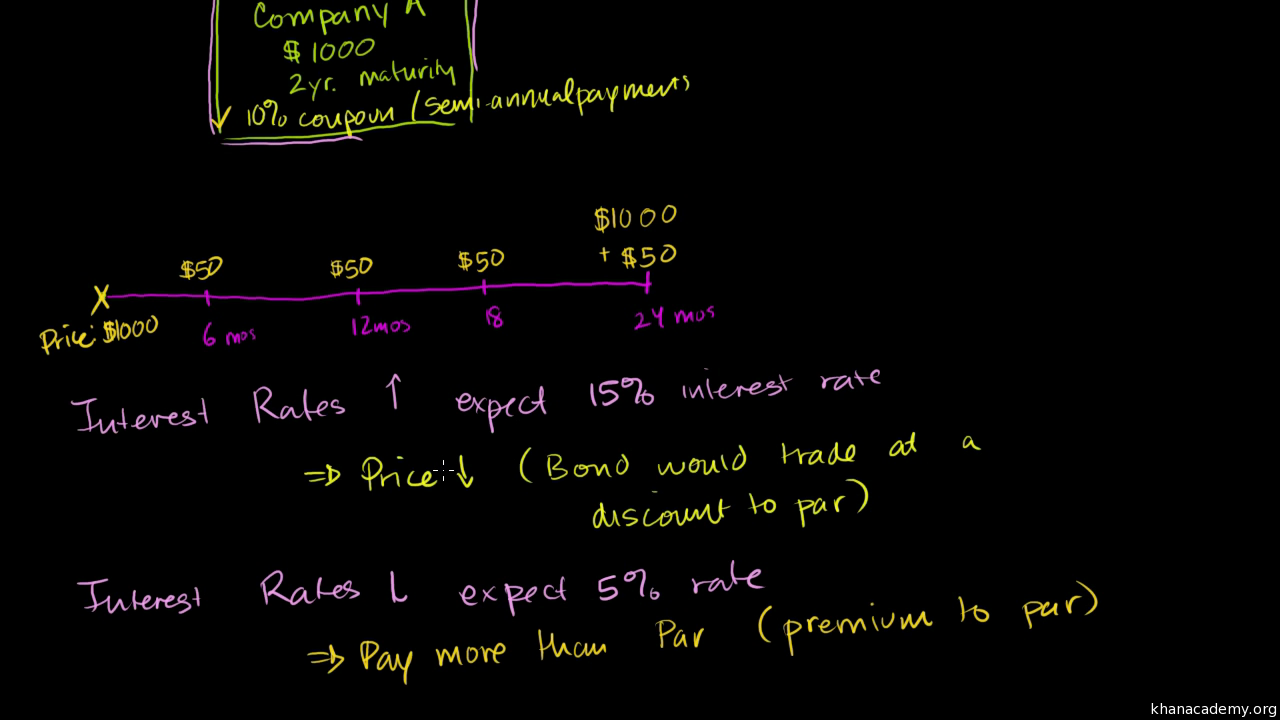 Company A
$1000
2yr. maturity
10% coupon (semi-annual payments
$1000
+ $50
$50 $50 $50
Price: $1000
6 mos 12mos 18 24 mos
Interest Rates ↑ expect 15% interest rate
⇒ Price ↓ (Bond would trade at a
discount to par)
Interest Rates ↓ expect 5% rate
⇒ Pay more than Par (premium to par)
khanacademy.org